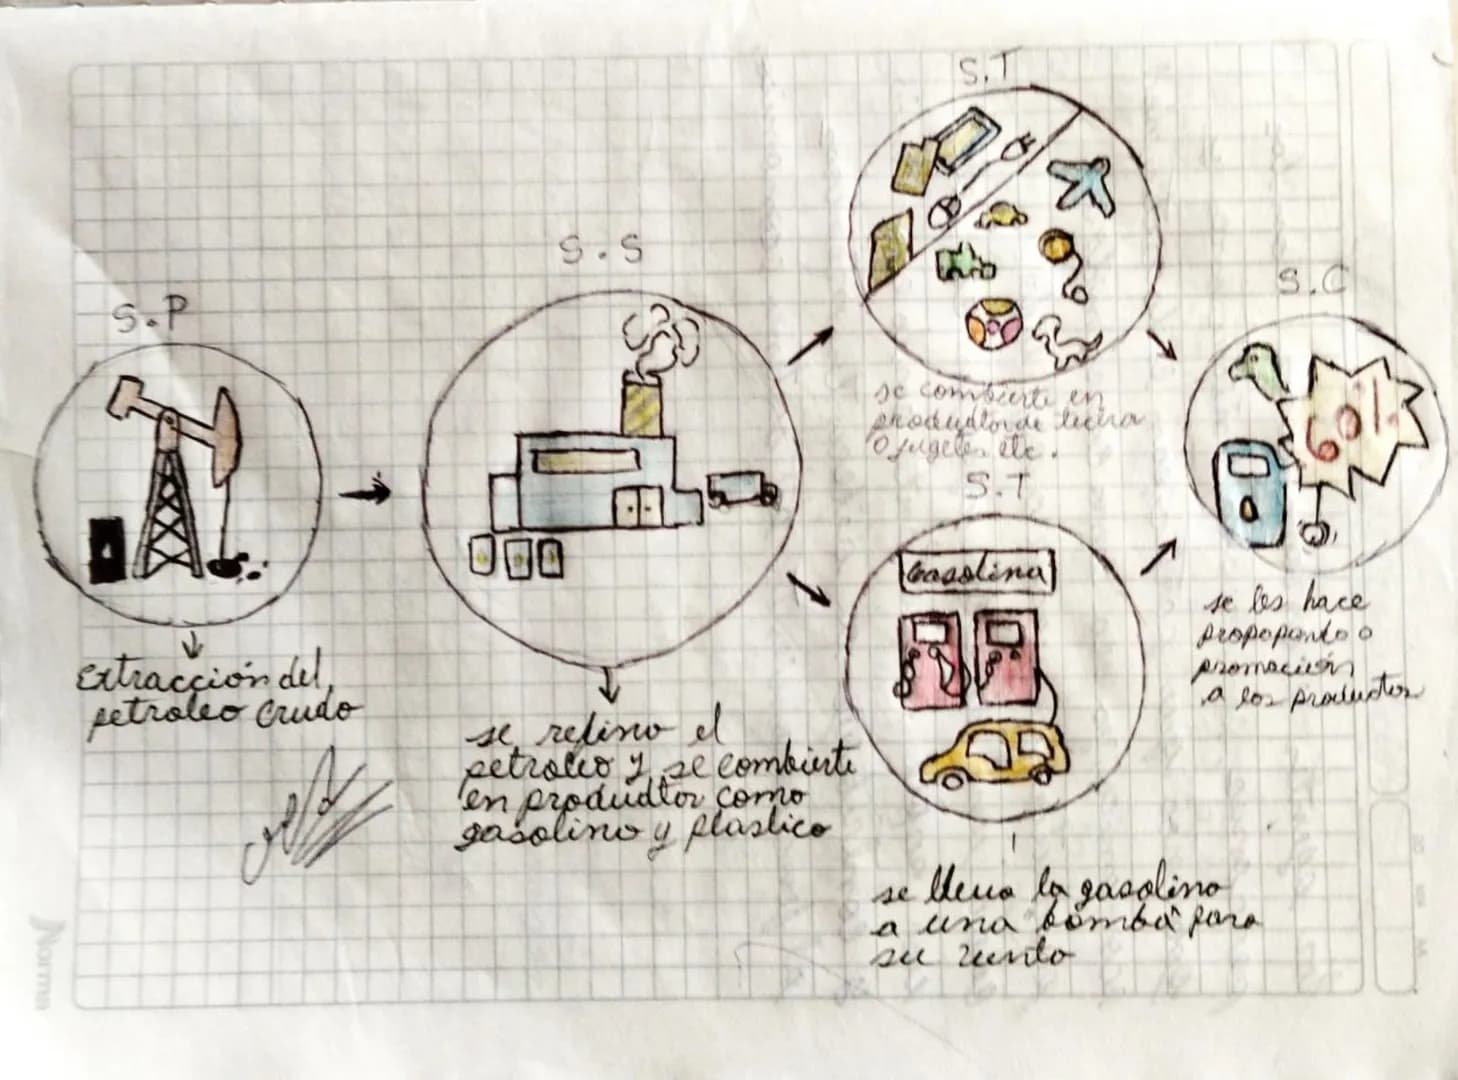 S.P
Extracción del
petroleo crudo
S.S
se refino el
petroleo y se combierte
en productor como
gasolino y plastico
S.T
se combierte en
productor de
o jugetes etc.
S.T
Gasolina
se lleva la gasolina
a una bomba para
su
S.C
60%
se les hace
o
promoción
a los productos
Norma